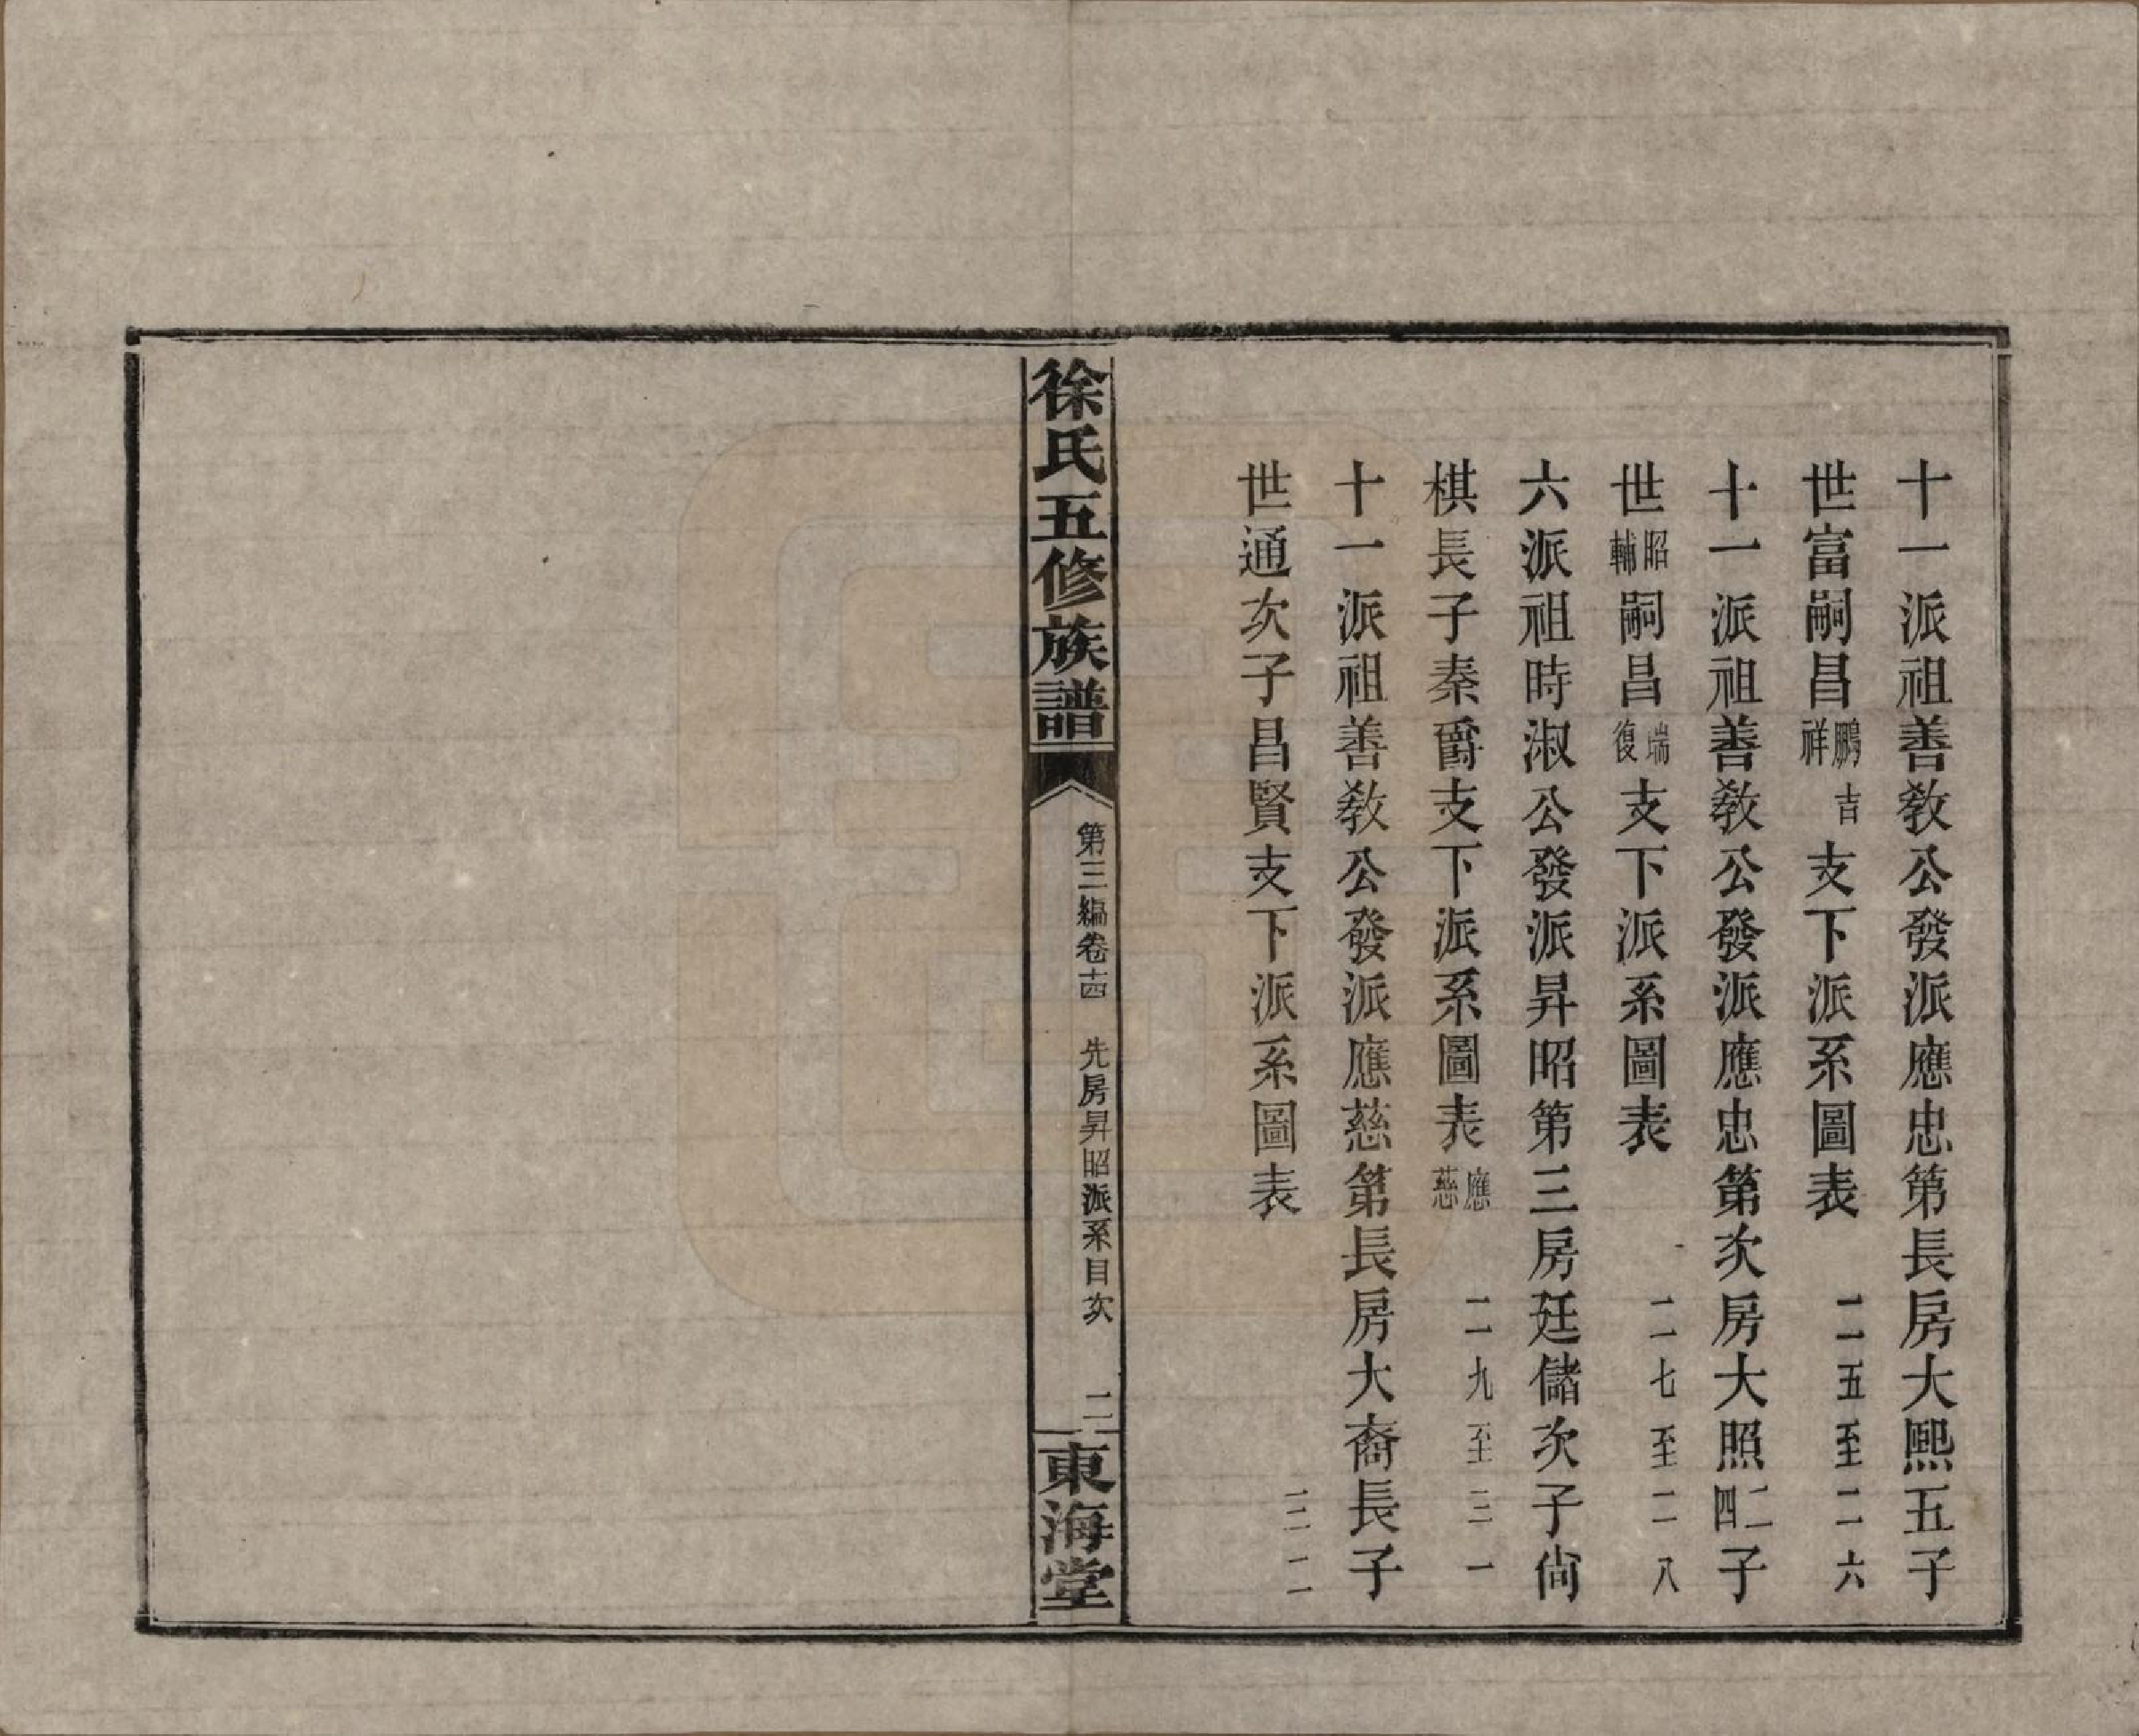 十一派祖善敎公發派應忠第長房大熙五子
世富嗣昌鵬吉祥支下派系圖表 二五至二六
十一派祖善敎公發派應忠第次房大照二四子
世昭輔嗣昌瑞復支下派系圖表 二七至二八
六派祖時淑公發派昇昭第三房廷儲次子尙
棋長子秦爵支下派系圖表應慈 二九至三一
十一派祖善敎公發派應慈第長房大裔長子
世通次子昌賢支下派系圖表
徐氏五修族譜
第三編卷十四 先房昇昭派系目次 二
東海堂